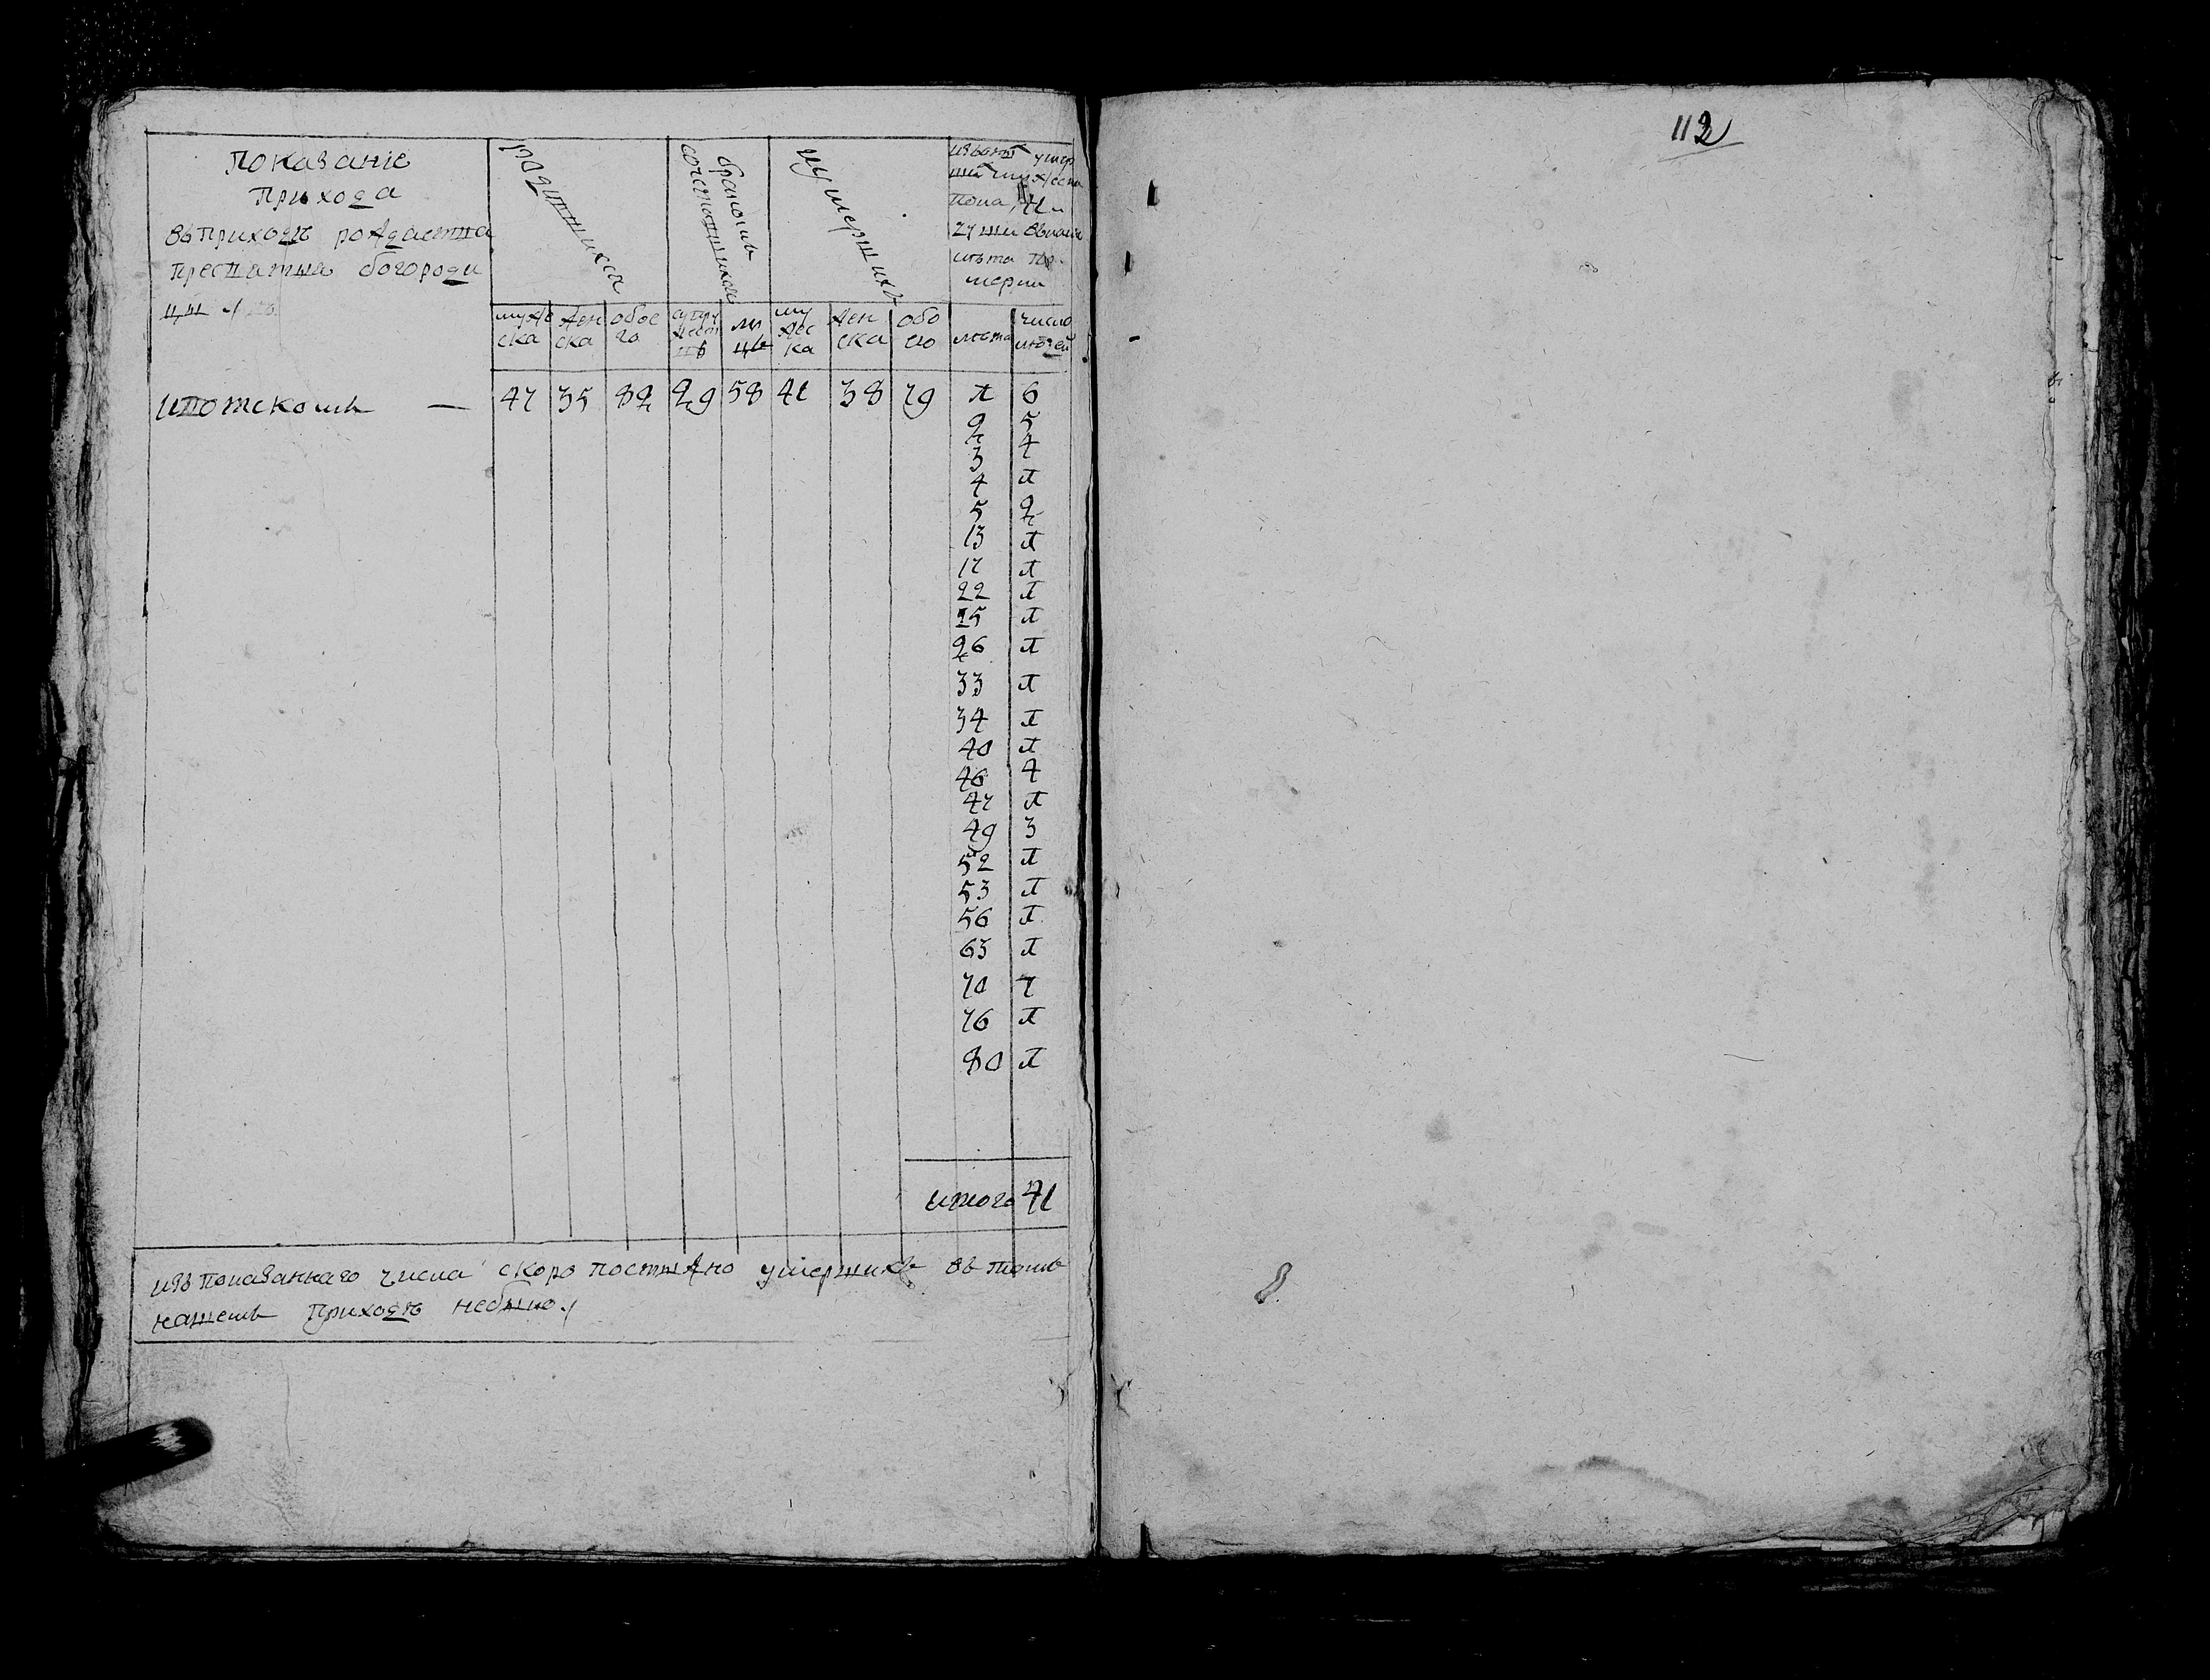 112
Показанiе
Прихода
въ приходѣ рождества
пресвятыя богороди
цы
родившихся
бракомъ
сочетавшихся
умерших
изъ онаго умер
ших мужеска
пола,
въ какия
лѣта по-
мерли
муже
ска
жен
ска
обое
го
супру
жест
въ
ли
цъ
му
жес
ка
жен
ска
обо
его
лѣта
число
людей
ипотскомъ — 47 35 82 29 58 41 38 79 1 6
2 5
3 4
4 1
5 2
13 1
17 1
22 1
25 1
26 1
33 1
34 1
40 1
46 4
47 1
49 3
52 1
53 1
56 1
63 1
70
76 1
80 1
итого 41
изъ показаннаго числа скоро постижно умерших въ томъ
нашемъ приходѣ небыло